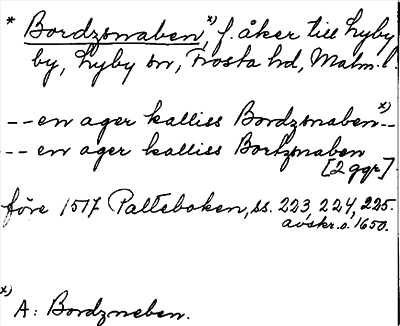 * Bordzsnaben,ˣ⁾ f. åker till Hyby
by, Hyby sn, Frosta hd, Malm. l.
-- en ager kalliss Bordzsnabenˣ⁾--
-- en ager kalliss Bortzsnaben
[2 ggr].
före 1517 Palteboken, ss. 223, 224, 225.
avskr. o. 1650.
x) A: Bordzneben.